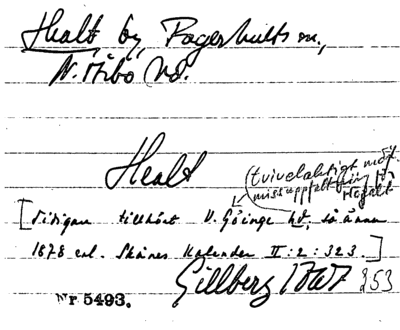 Healt by, Fagerhults sn,
N. Åsbo hd.
Healt
(tvivelaktigt
missuppfattning
Högalt
[Tidigare tillhört V. Göinge hd, så ännu
1878 enl. Skånes Kalender II:2:323.]
Gillberg 1767 353
Nr 5493.